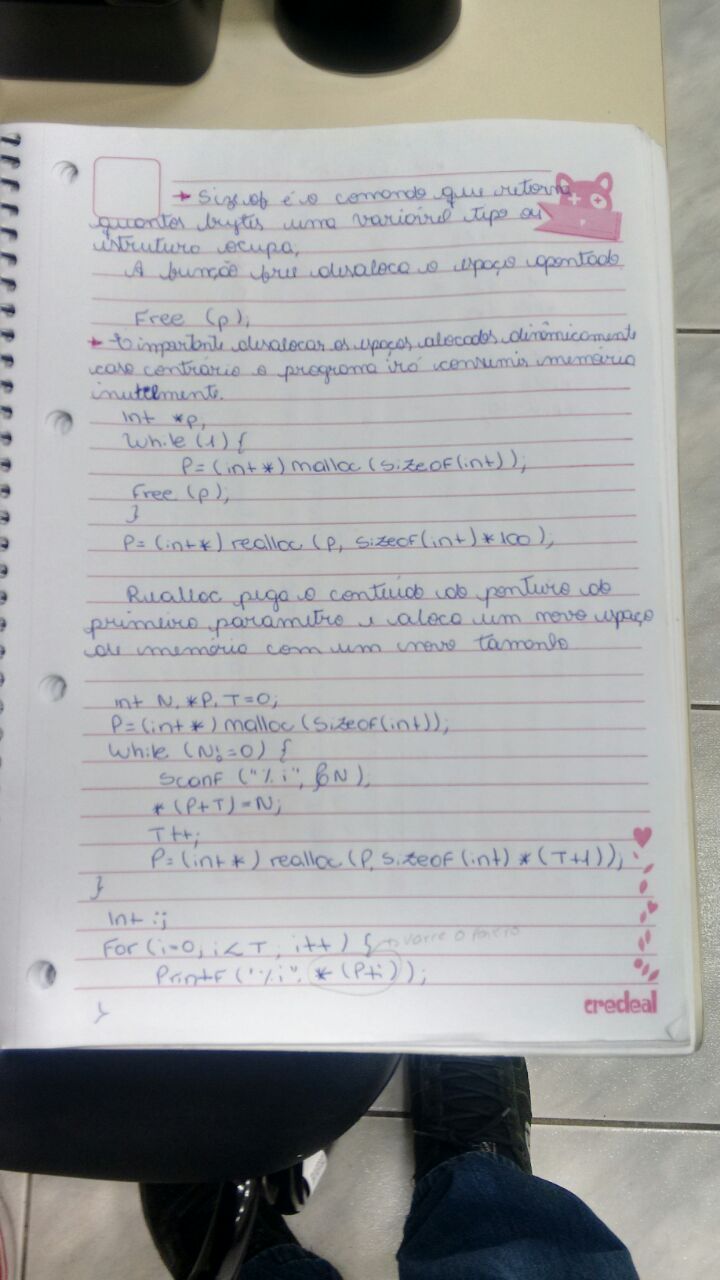 → Sizeof é o comando que retorna
quantos bytes uma variável tipo ou
estrutura ocupa,
A função free desaloca o espaço apontado
Free (p);
→ É importante desalocar os espaços alocados dinâmicamente
caso contrário o programa irá consumir memória
inutilmente.
Int *p,
While (1) {
P=(int*) malloc (sizeof(int));
Free (p);
}
P=(int*) realloc (p, sizeof(int)*100);
Realloc pega o conteúdo do ponteiro do
primeiro parametro e aloca um novo espaço
de memória com um novo tamanho
int N, *P, T=0;
P=(int*) malloc (sizeof(int));
While (N!=0) {
Scanf ("%i", &N);
*(P+T)=N;
T++;
P=(int*) realloc (P, sizeof(int)*(T+1));
}
Int i;
For (i=0, i<T, i++) { → varre o
Printf ("%i", *(P+i));
}
credeal